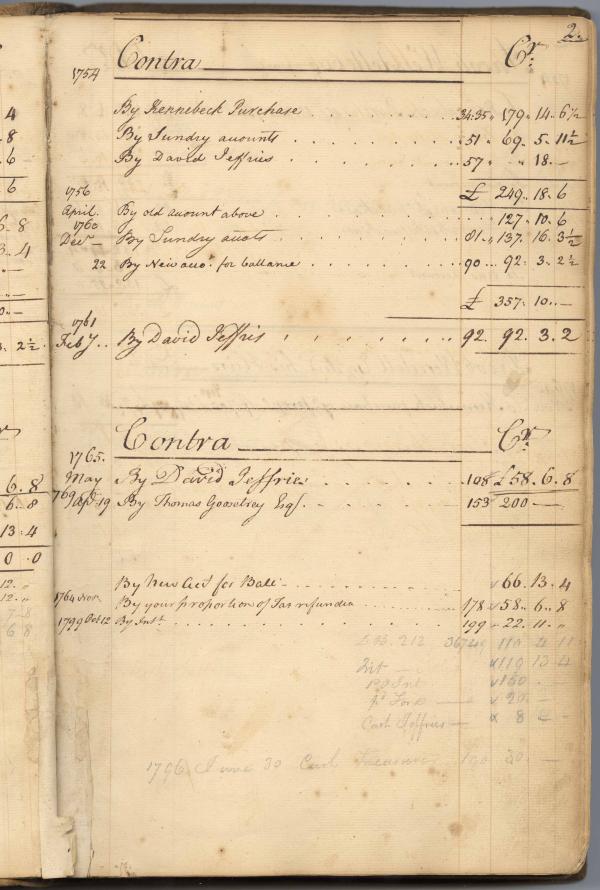 2.
Contra Cr.
1754
By Kennebeck Purchase 34.35 179 14 6½
By Sundry accounts 51 69 5 11½
By David Jeffries 57 18
1756 £ 249 18 6
April By old account above 127 10 6
1760
Decr By Sundry accots 81 137 16 3½
22 By New acco. for ballance 90 92 3 2½
£ 357 10
1761
Feby By David Jeffris 92 92 3 2
Contra Cr.
1765
May By David Jeffries 108 £58 6 8
19 By Thomas Goosetrey Esq 153 200
By New Acct for Balle 66 13 4
1764 Nov By your proportion of Tax refunded 178 58 6 8
1799 Oct 12 By Int 199 22 11
212 110 4 11
119 13 4
Int 150
20
Cash Jeffries 8
1796 June 30 Cash 30